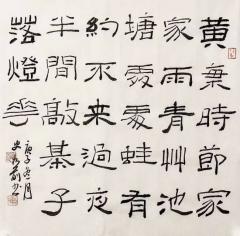 黄某時節家
家雨青艸池
塘處處蛙有
約不来過夜
半間敲棊子
落燈華
庚子冬月